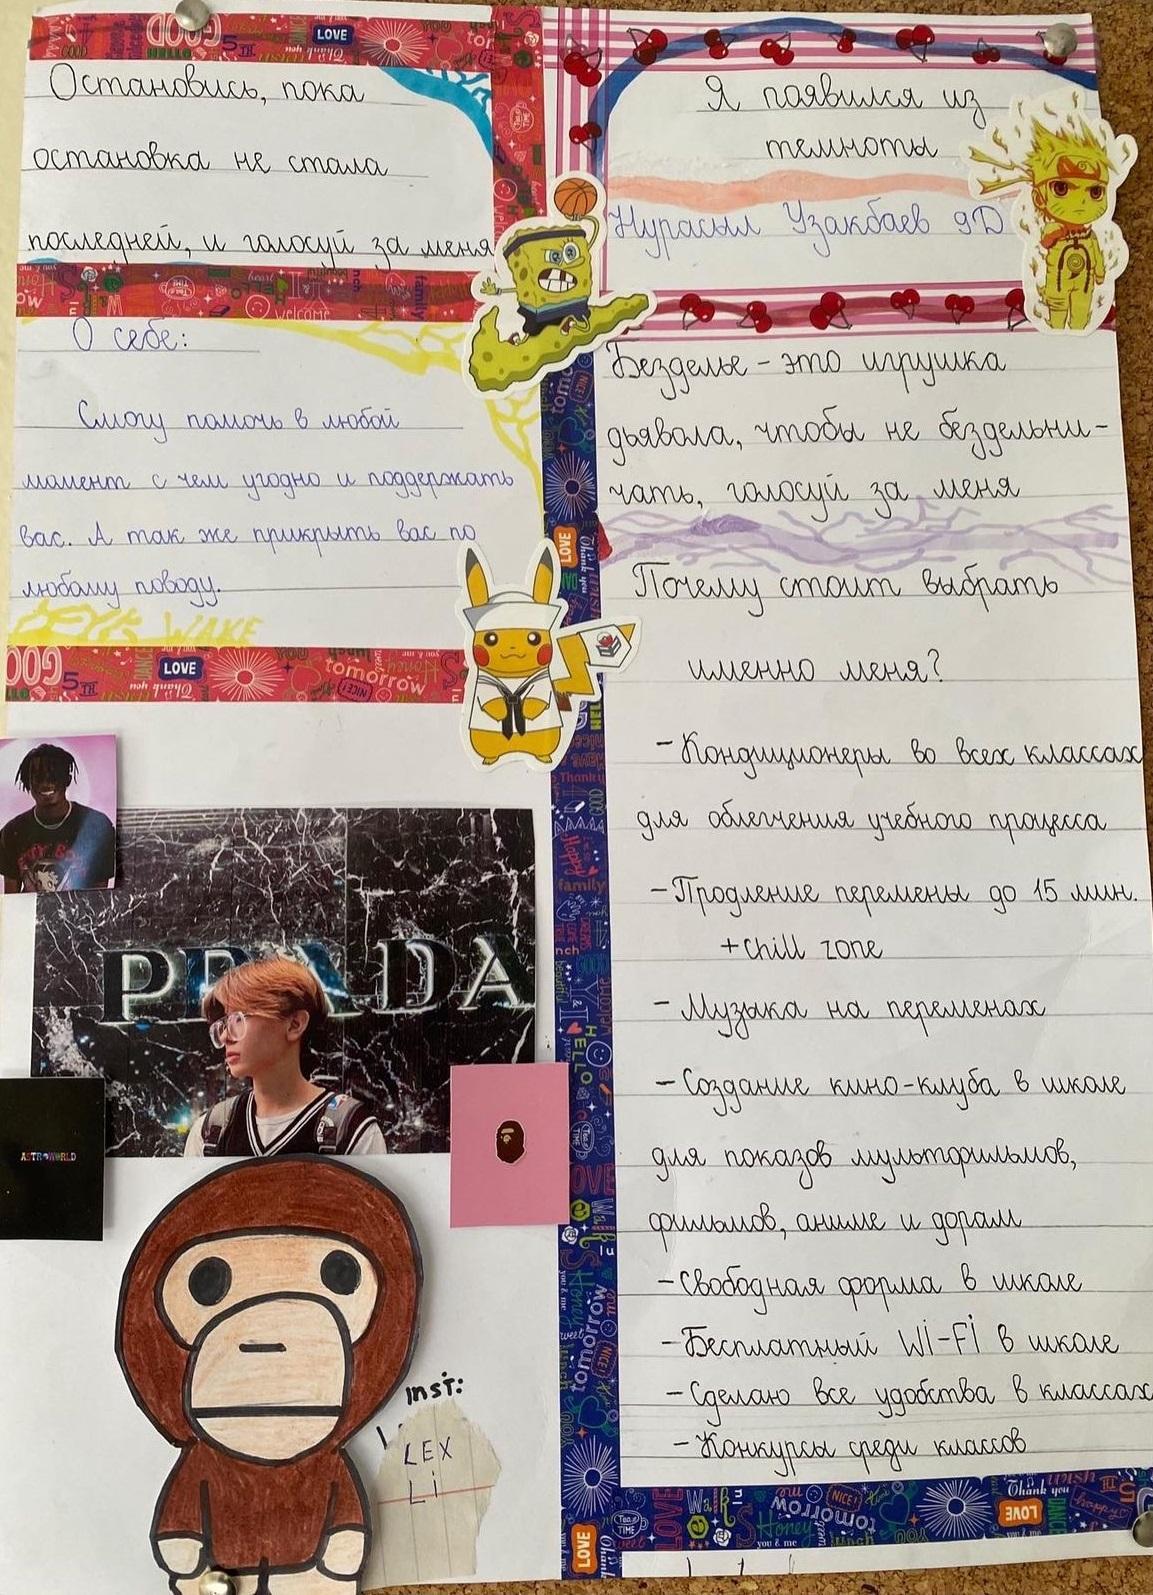 Остановись, пока
остановка не стала
последней, и голосуй за меня
О себе:
Смогу помочь в любой
момент с чем угодно и поддержать
вас. А так же прикрыть вас по
любому поводу.
WAKE
PRADA
ASTROWORLD
inst:
LEX
Li
Я появился из
темноты
Нурасыл Узакбаев 9D
Безделье - это игрушка
дьявола, чтобы не бездельни-
чать, голосуй за меня
Почему стоит выбрать
именно меня?
- Кондиционеры во всех классах
для облегчения учебного процесса
- Продление перемены до 15 мин.
+ chill zone
- Музыка на переменах
- Создание кино-клуба в школе
для показов мультфильмов,
фильмов, аниме и дорам
- Свободная форма в школе
- Бесплатный Wi-Fi в школе
- Сделаю все удобства в классах
- Конкурсы среди классов